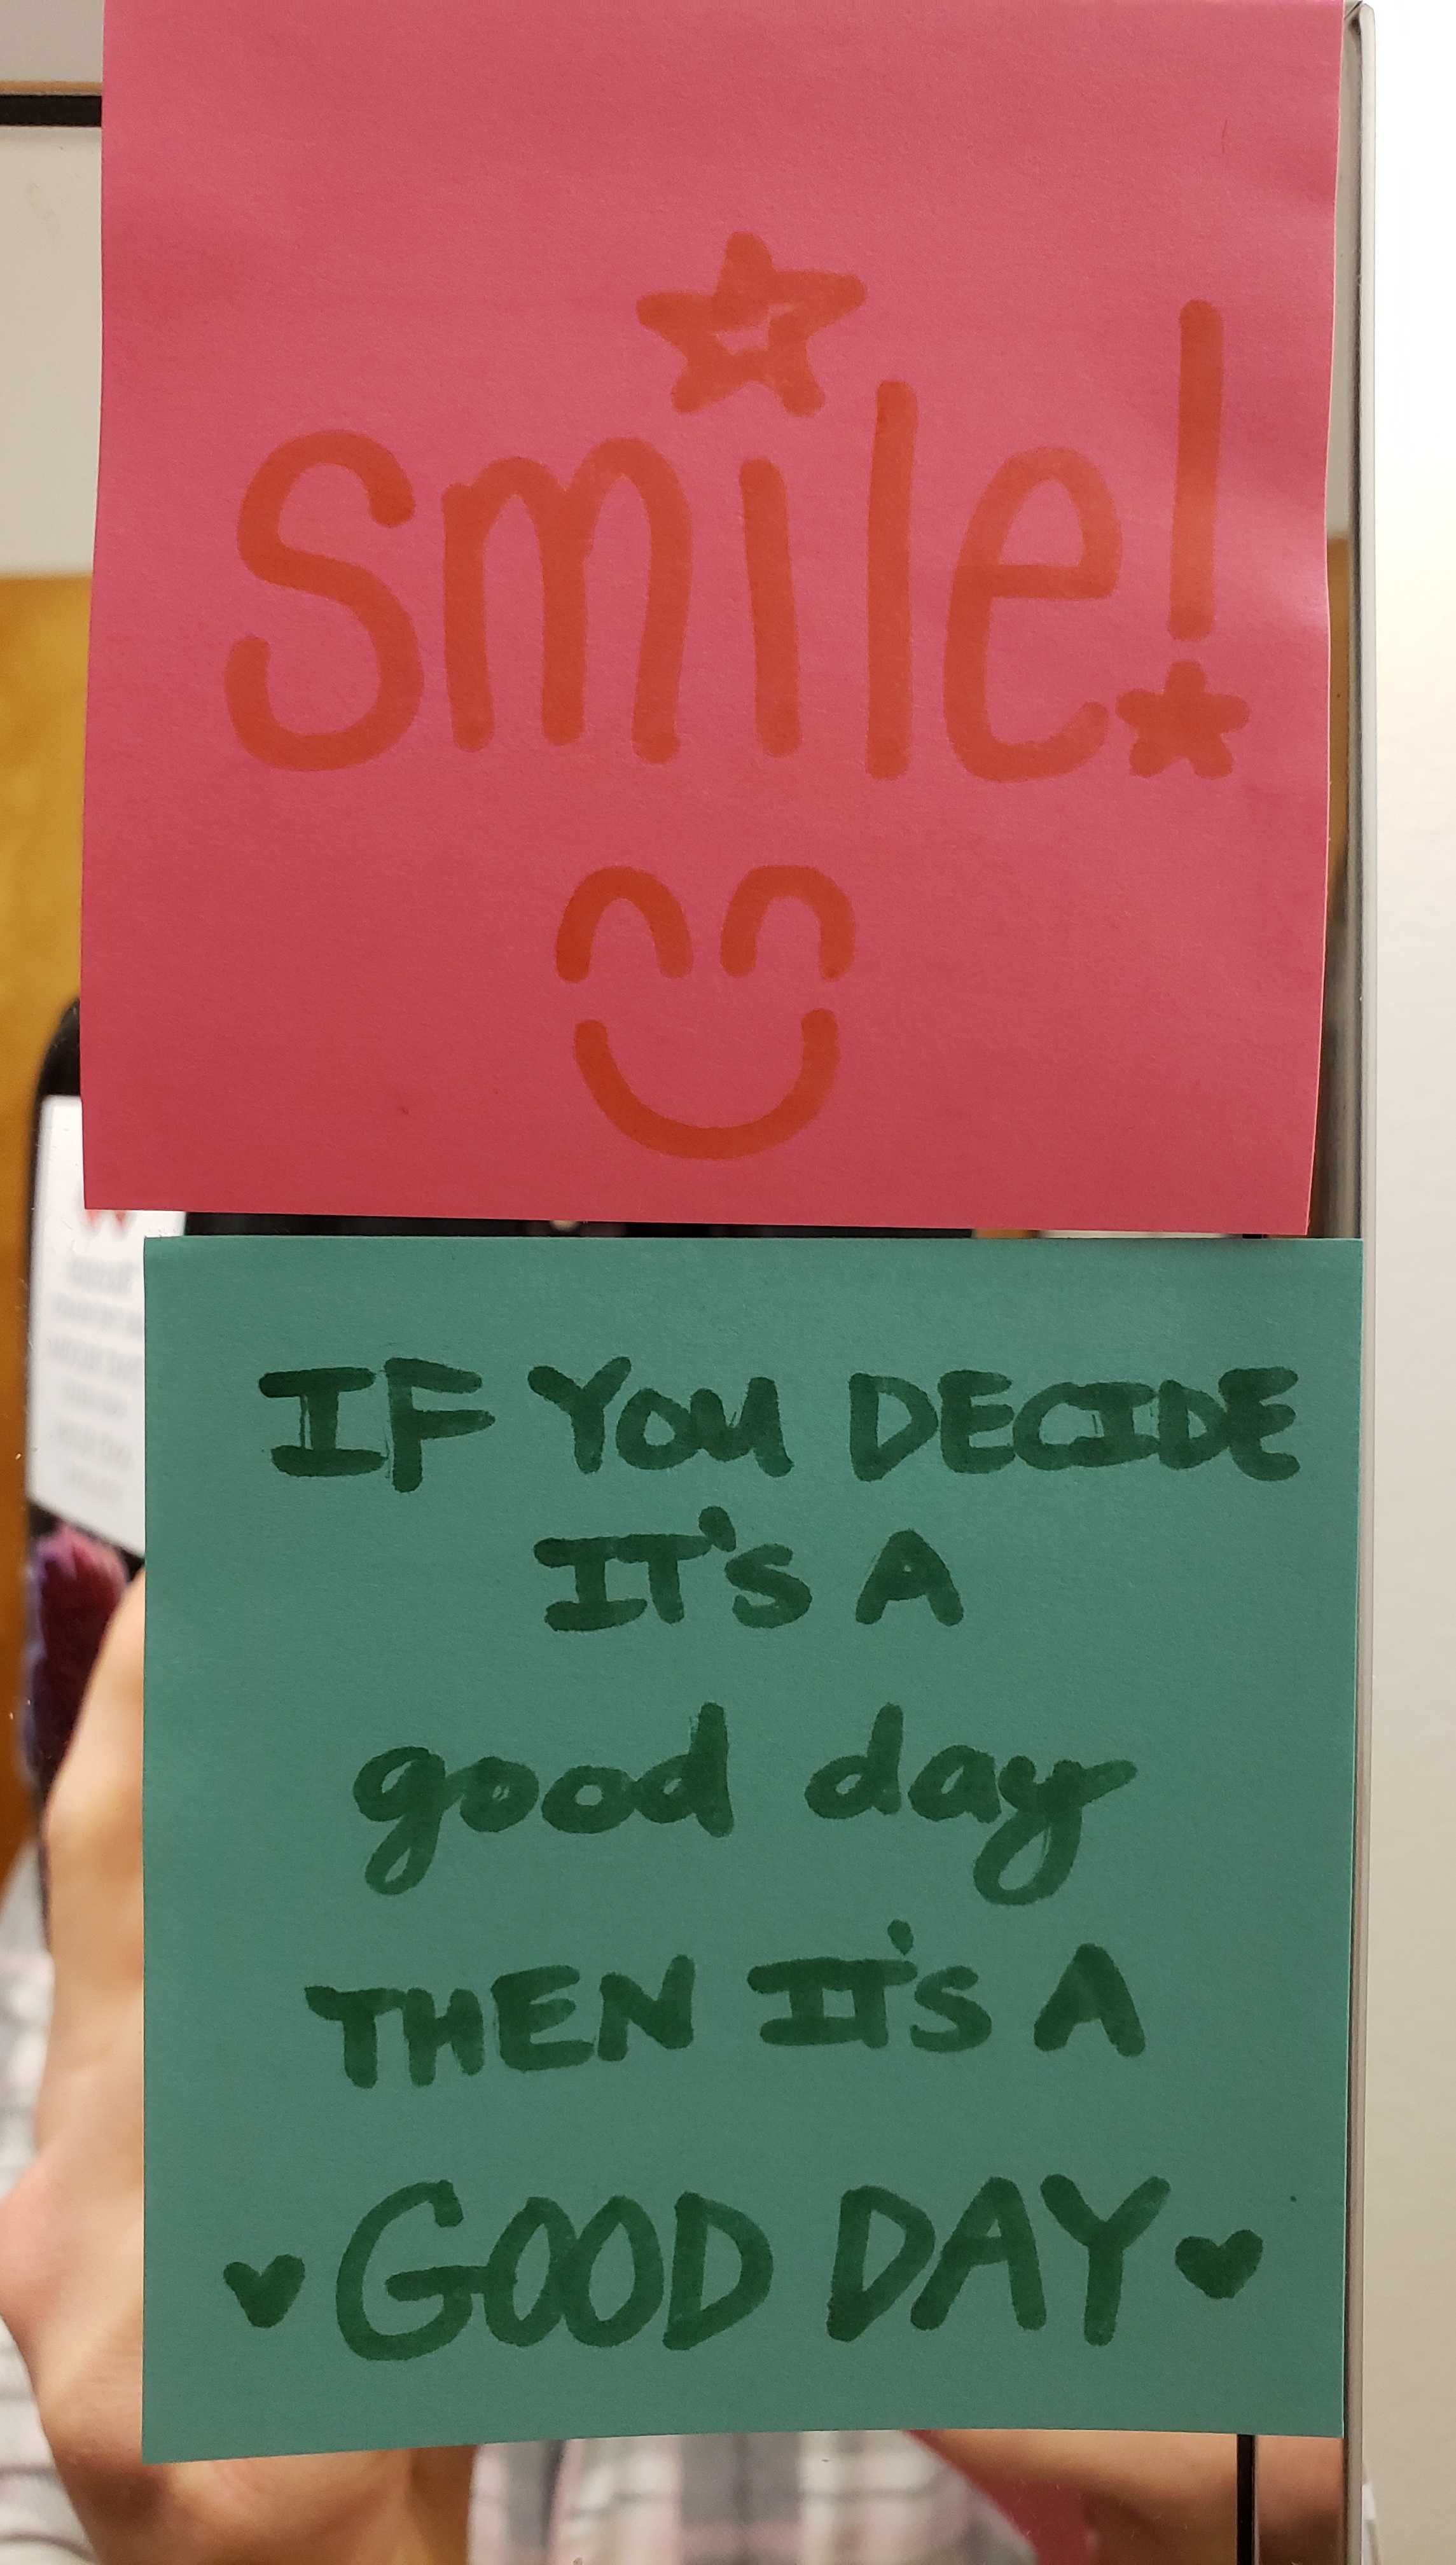 smile!
IF YOU DECIDE
IT'S A
good day
THEN IT'S A
GOOD DAY